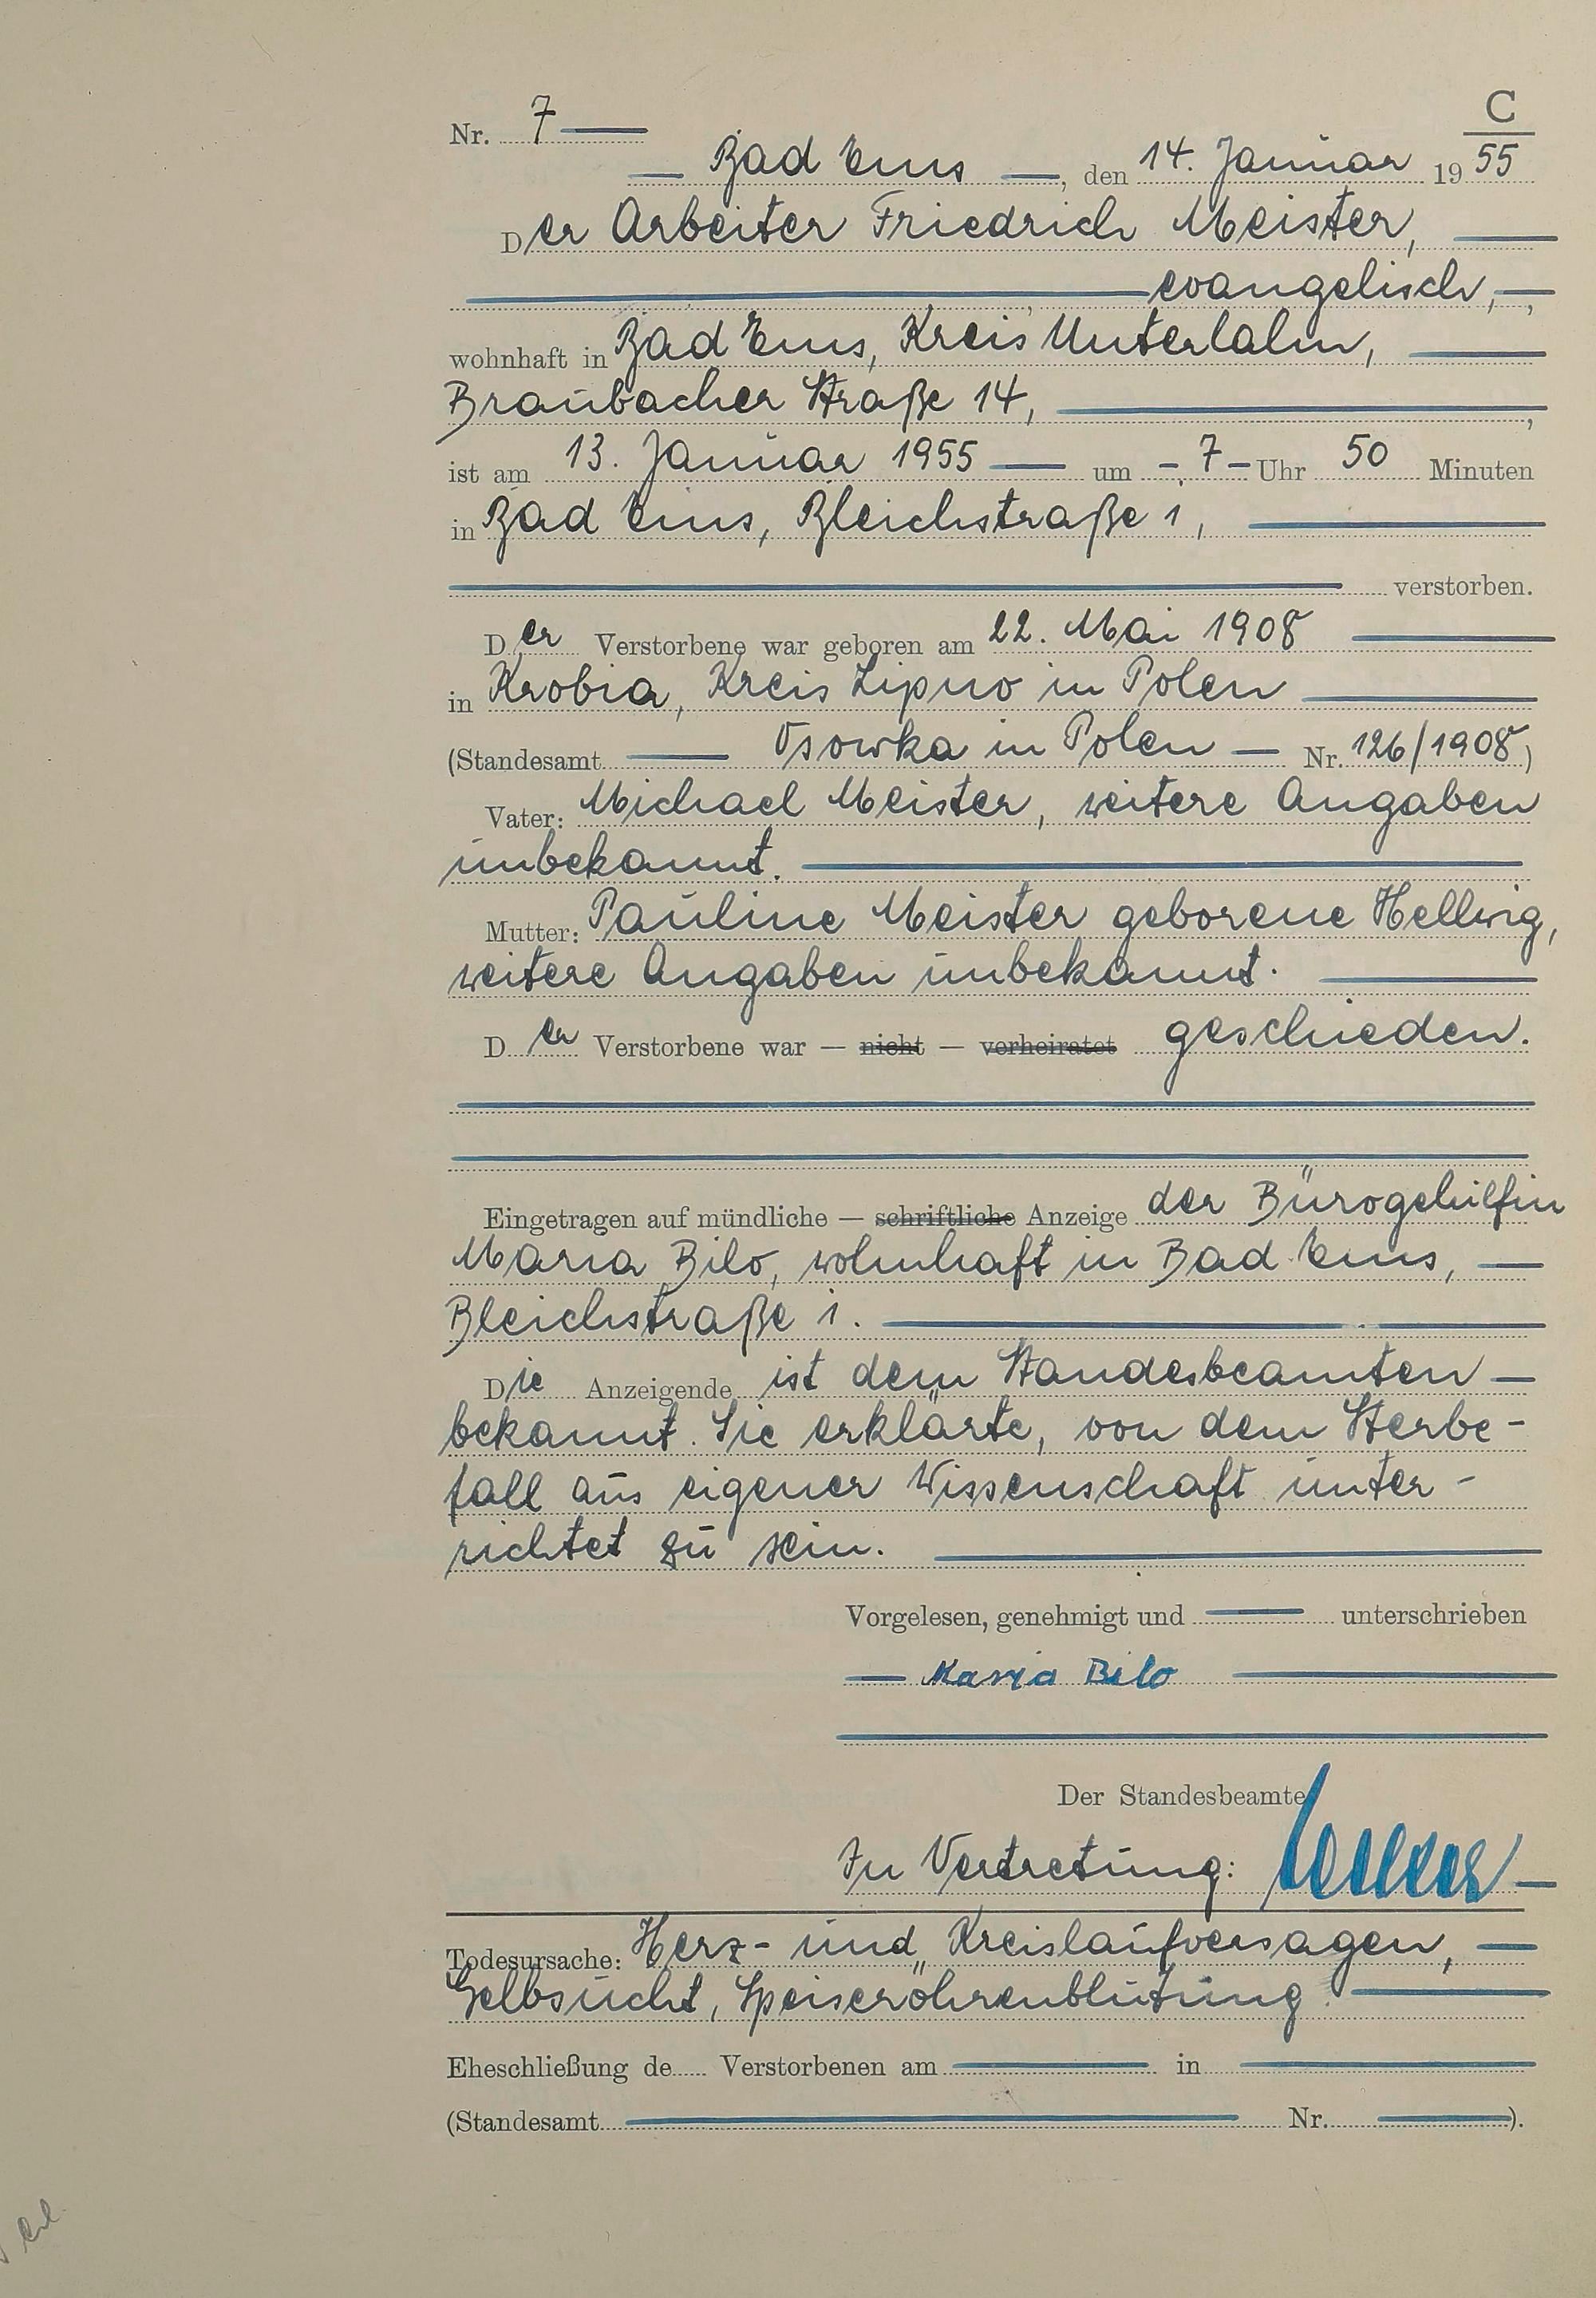 C
Nr. 7
Bad Ems, den 14. Januar 1955
Der Arbeiter Friedrich Meister,
evangelisch,
wohnhaft in Bad Ems, Kreis Unterlahn,
Braubacher Straße 14,
ist am 13. Januar 1955 um 7 Uhr 50 Minuten
in Bad Ems, Bleichstraße 1,
verstorben.
Der Verstorbene war geboren am 22. Mai 1908
in Krobia, Kreis Lipno in Polen
(Standesamt Osowka in Polen Nr. 126/1908)
Vater: Michael Meister, weitere Angaben
unbekannt.
Mutter: Pauline Meister geborene Hellwig,
weitere Angaben unbekannt.
Der Verstorbene war — nicht — verheiratet geschieden.
Eingetragen auf mündliche — schriftliche Anzeige der Bürogehilfin
Maria Bilo, wohnhaft in Bad Ems,
Bleichstraße 1.
Die Anzeigende ist dem Standesbeamten
bekannt. Sie erklärte, von dem Sterbe-
fall aus eigener Wissenschaft unter-
richtet zu sein.
Vorgelesen, genehmigt und unterschrieben
Maria Bilo
Der Standesbeamte
In Vertretung:
Todesursache: Herz- und Kreislaufversagen,
Gelbsucht, Speiseröhrenblutung.
Eheschließung de Verstorbenen am in
(Standesamt Nr. ).